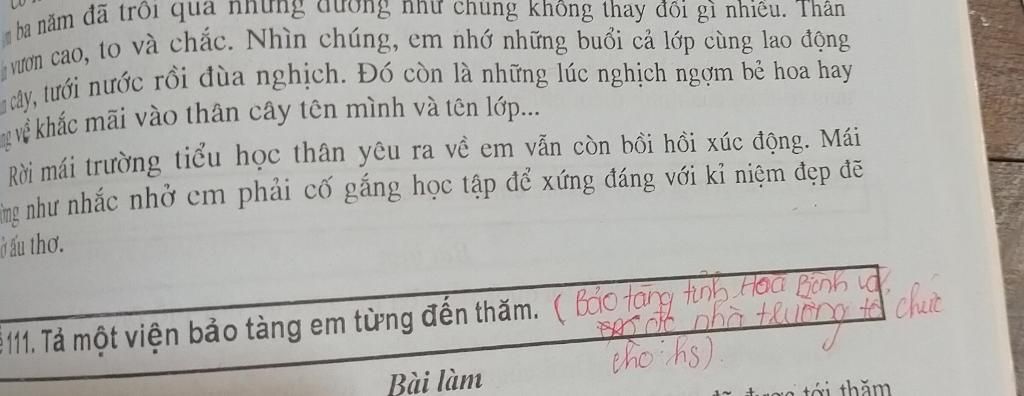 ba năm đã trôi qua nhưng dường như chúng không thay đổi gì nhiều. Thân
vươn cao, to và chắc. Nhìn chúng, em nhớ những buổi cả lớp cùng lao động
cây, tưới nước rồi đùa nghịch. Đó còn là những lúc nghịch ngợm bẻ hoa hay
về khắc mãi vào thân cây tên mình và tên lớp...
Rời mái trường tiểu học thân yêu ra về em vẫn còn bồi hồi xúc động. Mái
như nhắc nhở em phải cố gắng học tập để xứng đáng với kỉ niệm đẹp đẽ
ấu thơ.
111. Tả một viện bảo tàng em từng đến thăm. (Bảo tàng tỉnh Hoà Bình
nhà trường tổ chức
cho hs).
Bài làm
được tới thăm